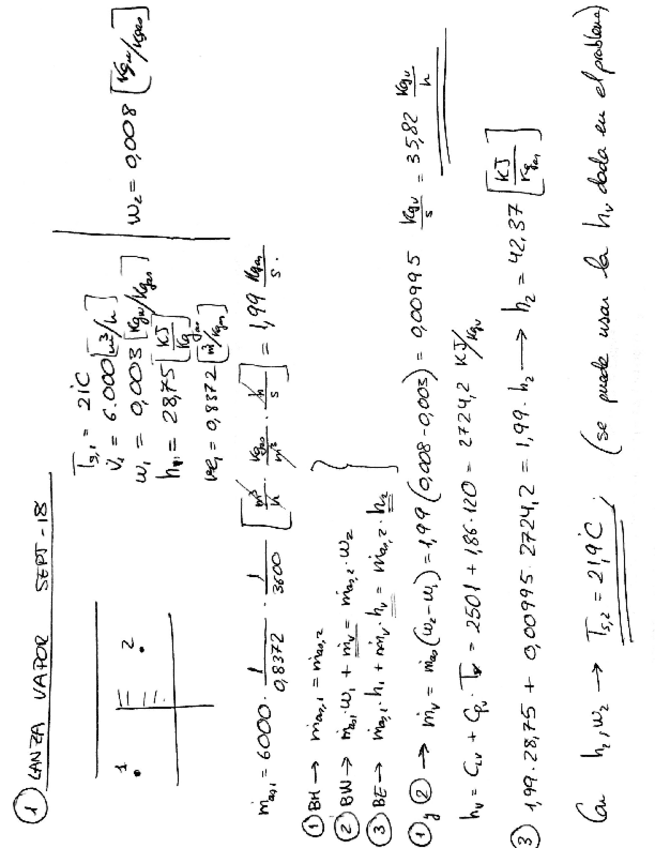 ① LANZA VAPOR SEPT-18
1 2
Ts,1 = 21°C
V̇1 = 6.000 [m³/h]
w1 = 0,003 [Kgw/Kgas]
h1 = 28,75 [KJ/Kgas]
ve1 = 0,8372 [m³/Kgas]
w2 = 0,008 [Kgw/Kgas]
ṁas,1 = 6000 · 1/0,8372 · 1/3600 [m³/h · Kgas/m³ · h/s] = 1,99 Kgas/s.
① BH → ṁas,1 = ṁas,2
② BW → ṁas,1 · w1 + ṁv = ṁas,2 · w2
③ BE → ṁas,1 · h1 + ṁv · hv = ṁas,2 · h2
① y ② → ṁv = ṁas (w2 - w1) = 1,99 (0,008 - 0,003) = 0,00995 Kgv/s = 35,82 Kgv/h
hv = CLv + Cpv · Tv = 2501 + 1,86 · 120 = 2724,2 KJ/Kgv
③ 1,99 · 28,75 + 0,00995 · 2724,2 = 1,99 · h2 → h2 = 42,37 [KJ/Kgas]
Con h2, w2 → Ts,2 = 21,9°C, (se puede usar la hv dada en el problema)